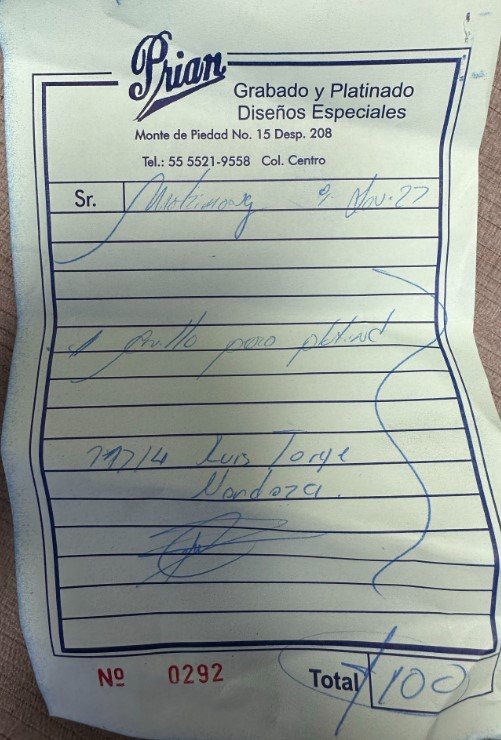 Prian
Grabado y Platinado
Diseños Especiales
Monte de Piedad No. 15 Desp. 208
Tel.: 55 5521-9558 Col. Centro
Sr.
1 anillo para
Luis Jorge
Mendoza.
Nº 0292
Total 100